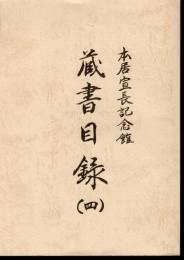 本居宣長記念館
蔵書目録
(四)